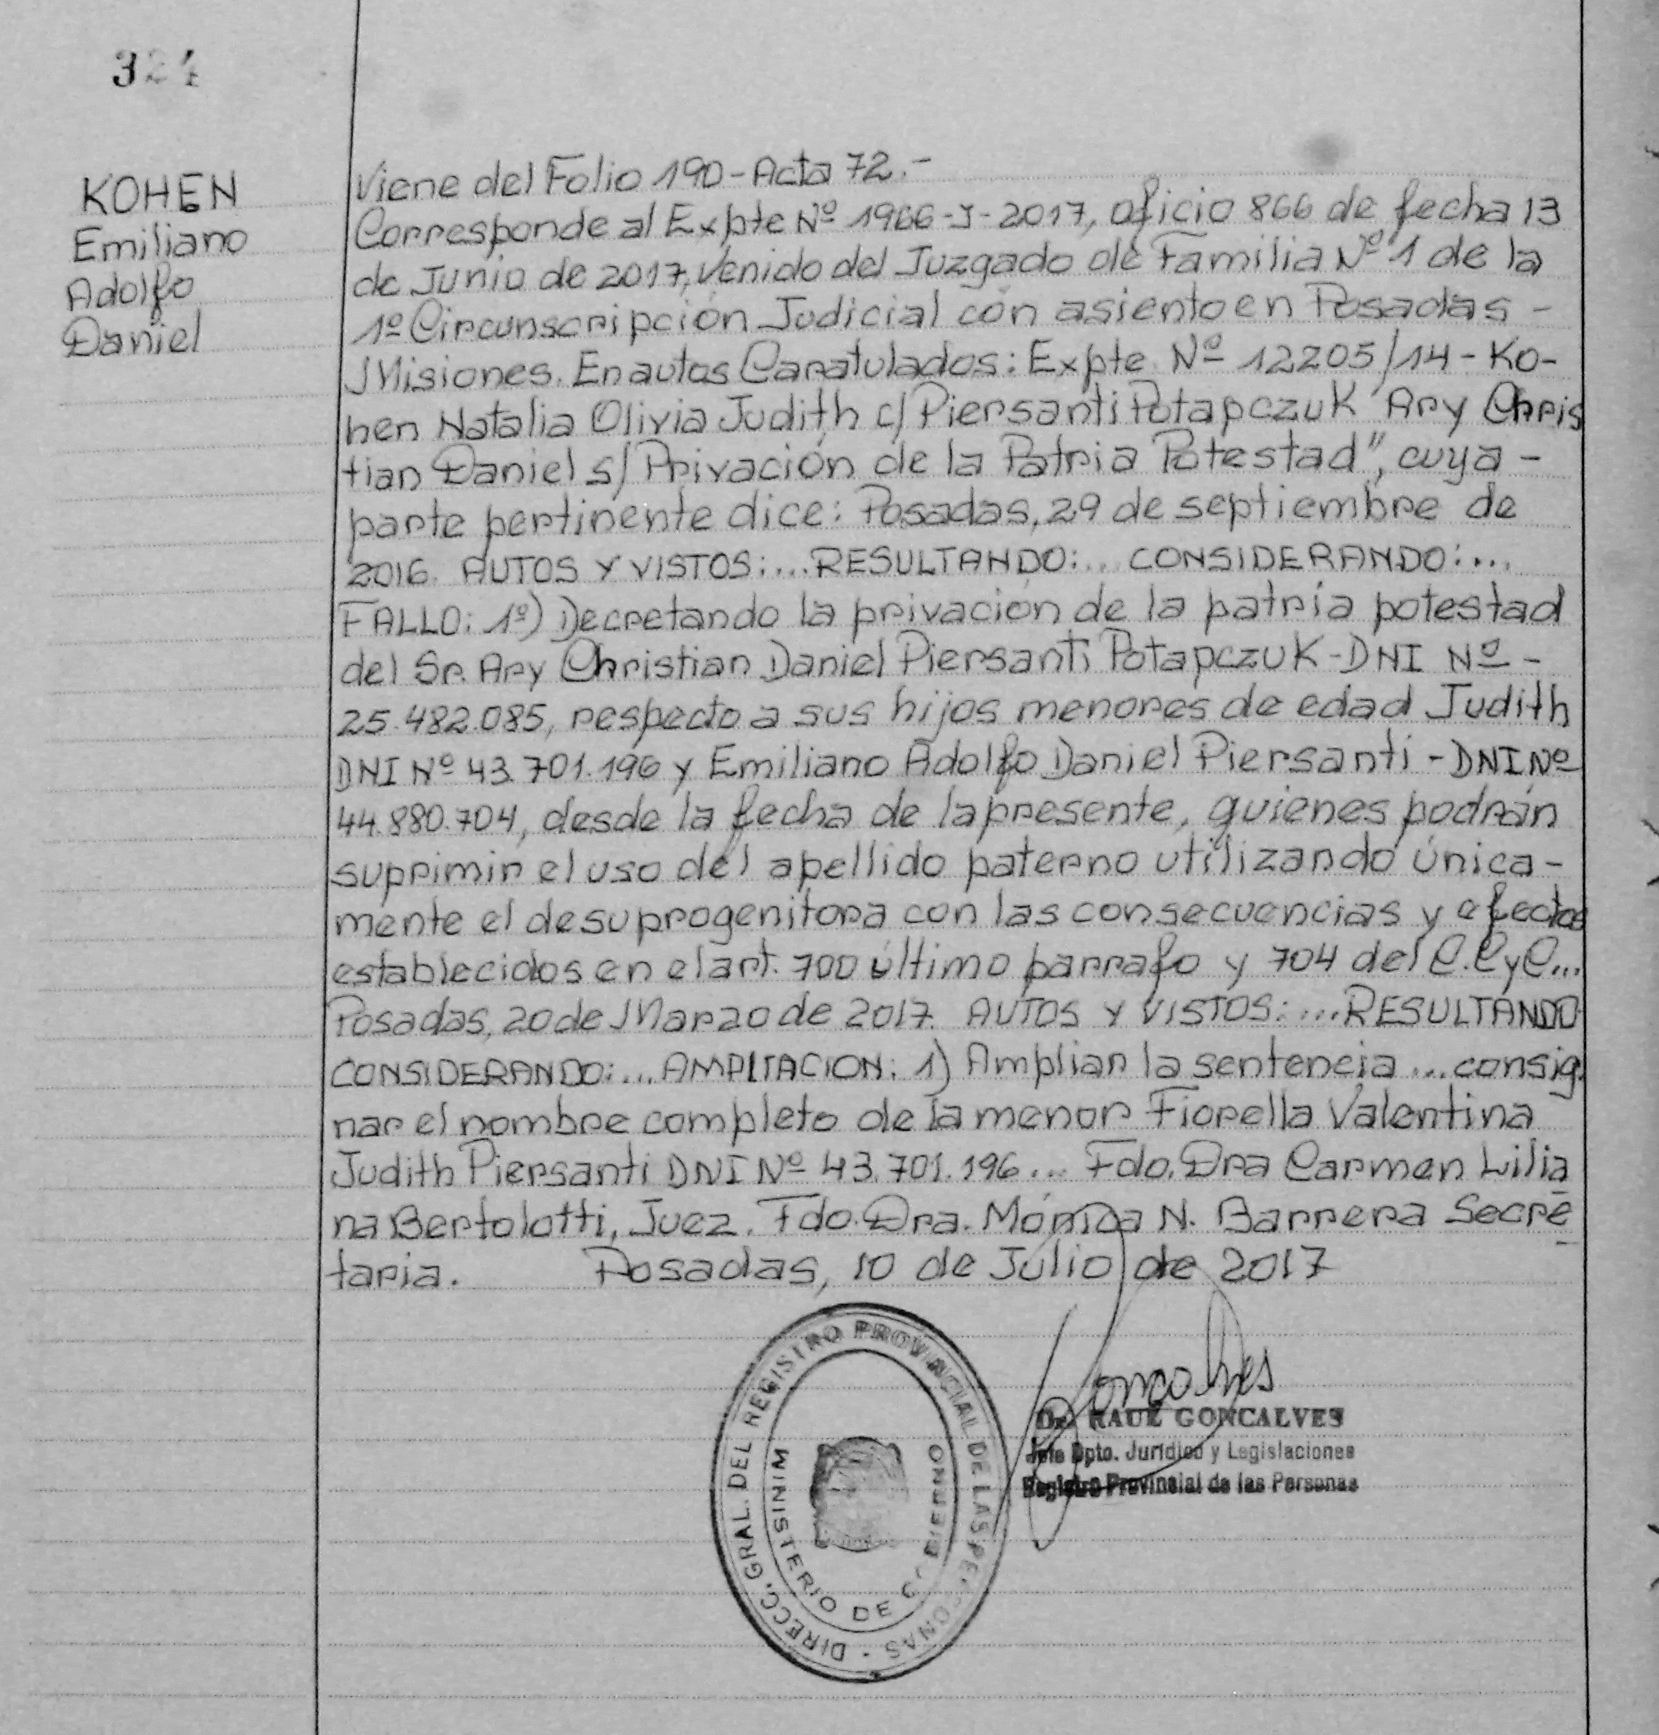 324
KOHEN
Emiliano
Adolfo
Daniel
Viene del Folio 190-Acta 72.-
Corresponde al Expte Nº 1966-J-2017, oficio 866 de fecha 13
de Junio de 2017, Venido del Juzgado de Familia Nº 1 de la
1º Circunscripción Judicial con asiento en Posadas -
Misiones. En autos Caratulados: Expte Nº 12205/14 - Ko-
hen Natalia Olivia Judith c/ Piersanti Potapczuk Ary Chris
tian Daniel s/ Privación de la Patria Potestad", cuya -
parte pertinente dice: Posadas, 29 de septiembre de
2016. AUTOS Y VISTOS:...RESULTANDO:... CONSIDERANDO:...
FALLO: 1º) Decretando la privación de la patria potestad
del Sr. Ary Christian Daniel Piersanti Potapczuk-DNI Nº -
25.482.085, respecto a sus hijos menores de edad Judith
DNI Nº 43.701.196 y Emiliano Adolfo Daniel Piersanti - DNI Nº
44.880.704, desde la fecha de la presente, quienes podrán
suprimir el uso del apellido paterno utilizando única-
mente el de su progenitora con las consecuencias y efectos
establecidos en el art. 700 último parrafo y 704 del C.C y C...
Posadas, 20 de Marzo de 2017. AUTOS Y VISTOS:...RESULTANDO
CONSIDERANDO:... AMPLIACION: 1) Ampliar la sentencia ... consig
nar el nombre completo de la menor Fiorella Valentina
Judith Piersanti DNI Nº 43.701.196... Fdo. Dra Carmen Lilia
na Bertolotti, Juez. Fdo. Dra. Mónica N. Barrera Secre
taria. Posadas, 10 de Julio de 2017
Goncalves
Dr. RAUL GONCALVES
Jefe Dpto. Jurídico y Legislaciones
Registro Provincial de las Personas
DIRECC. GRAL. DEL REGISTRO PROVINCIAL DE LAS PERSONAS -
MINISTERIO DE GOBIERNO